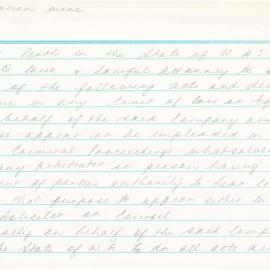 ation mine
Perth in the State of W A:
true & lawful attorney to
of the following acts and dee
in any Court of law or Eq
behalf of the said Company and
appear or be impleaded in
Criminal Proceedings whatsoever
any Arbitrator or person having
ent of parties authority to hear
that purpose to appear either in
Solicitor or Counsel
ally on behalf of the said Comp
he State of W.A to do all acts an